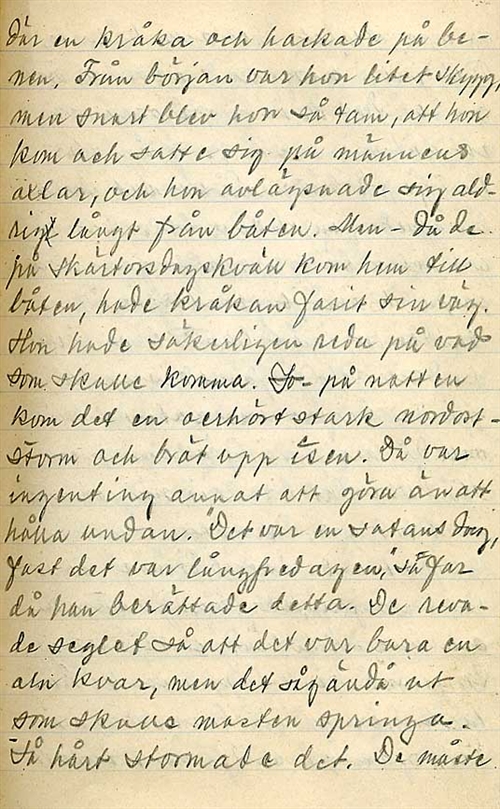 där en kråka och hackade på be-
nen. Från början var hon litet skygg,
men snart blev hon så tam, att hon
kom och satte sig på männens
axlar, och hon avlägsnade sig ald-
rig långt från båten. Men - då de
på Skärtorsdagskväll kom hem till
båten, hade kråkan farit sin väg.
Hon hade säkerligen reda på vad
som skulle komma. Jo - på natten
kom det en oerhört stark nordost-
storm och bröt upp isen. Då var
ingenting annat att göra än att
hålla undan. "Det var en satans dag,
fast det var långfredagen," sa far
då han berättade detta. De reva-
de seglet så att det var bara en
aln kvar, men det såg ändå ut
som skulle masten springa.
Så hårt stormade det. De måste